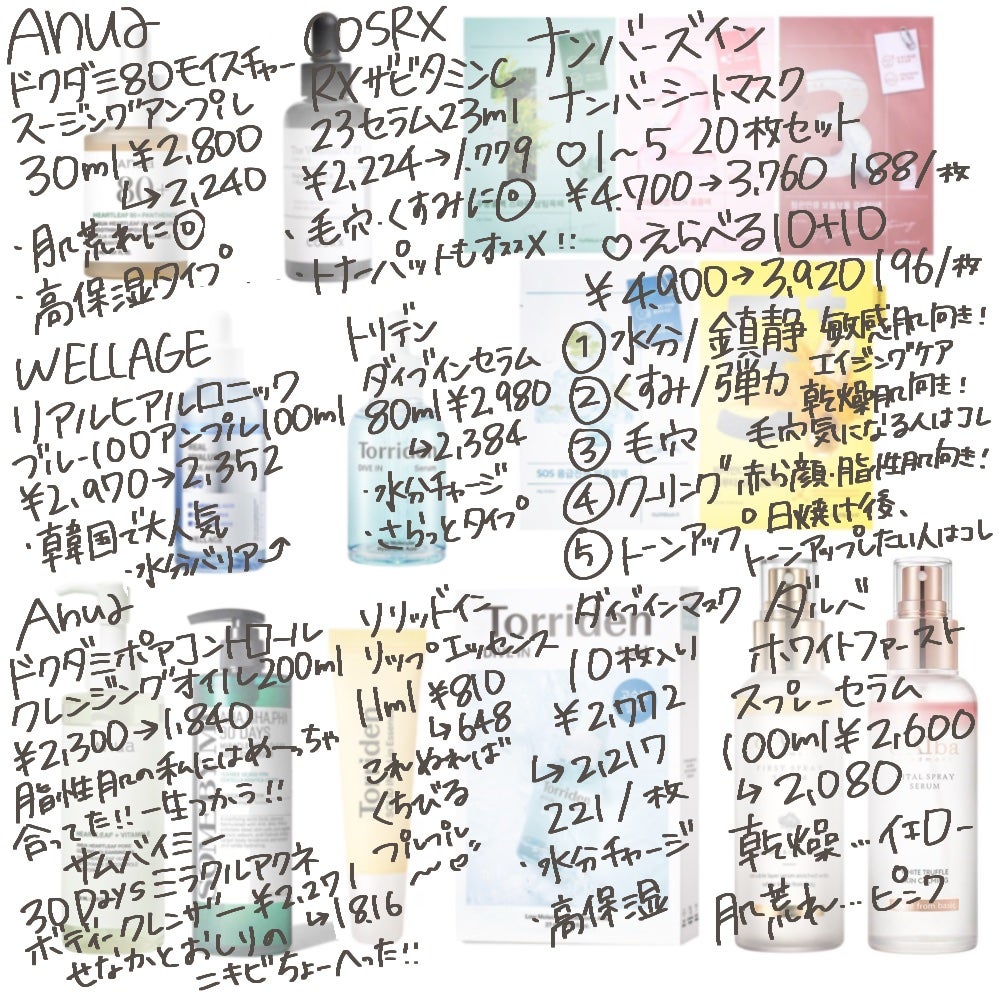 Anua
ドクダミ80モイスチャー
スージングアンプル
30ml ¥2,800
↳2,240
・肌荒れに◎
・高保湿タイプ
COSRX
RXザビタミンC
23セラム23ml
¥2,224→1,779
・毛穴・くすみに◎
・トナーパットもオススメ!!
ナンバーズイン
ナンバーシートマスク
♡1~5 20枚セット
¥4,700→3,760 188/枚
♡えらべる10+10
¥4,900→3,920 196/枚
①水分/鎮静 敏感肌向き!
②くすみ/弾力 エイジングケア
乾燥肌向き!
③毛穴 毛穴気になる人はコレ
④クーリング 赤ら顔・脂性肌向き!
日焼け後、
⑤トーンアップ トーンアップしたい人はコレ
WELLAGE
リアルヒアルロニック
ブルー100アンプル100ml
¥2,970→2,352
・韓国で大人気
・水分バリア⤴
トリデン
ダイブインセラム
80ml ¥2,980
↳2,384
・水分チャージ
・さらっとタイプ
Torriden
DIVE IN Serum
Anua
ドクダミポアコントロール
クレンジングオイル200ml
¥2,300→1,840
脂性肌の私にはめーっちゃ
合ってた!!一生つかう!!
サムバイミー
30Daysミラクルアクネ
ボディークレンザー ¥2,271
↳1816
せなかとおしりの
ニキビちょーへった!!
ソリッドイン
リップエッセンス
11ml ¥810
↳648
これぬれば
くちびる
プルプル
~♡
Torriden
ダイブインマスク
Torriden
DIVE IN
10枚入り
¥2,772
↳2,217
221/枚
・水分チャージ
・高保湿
Torriden
ダルバ
ホワイトファースト
スプレーセラム
100ml ¥2,600
↳2,080
乾燥…イエロー
肌荒れ…ピンク
FIRST SPRAY
VITAL SPRAY
SERUM